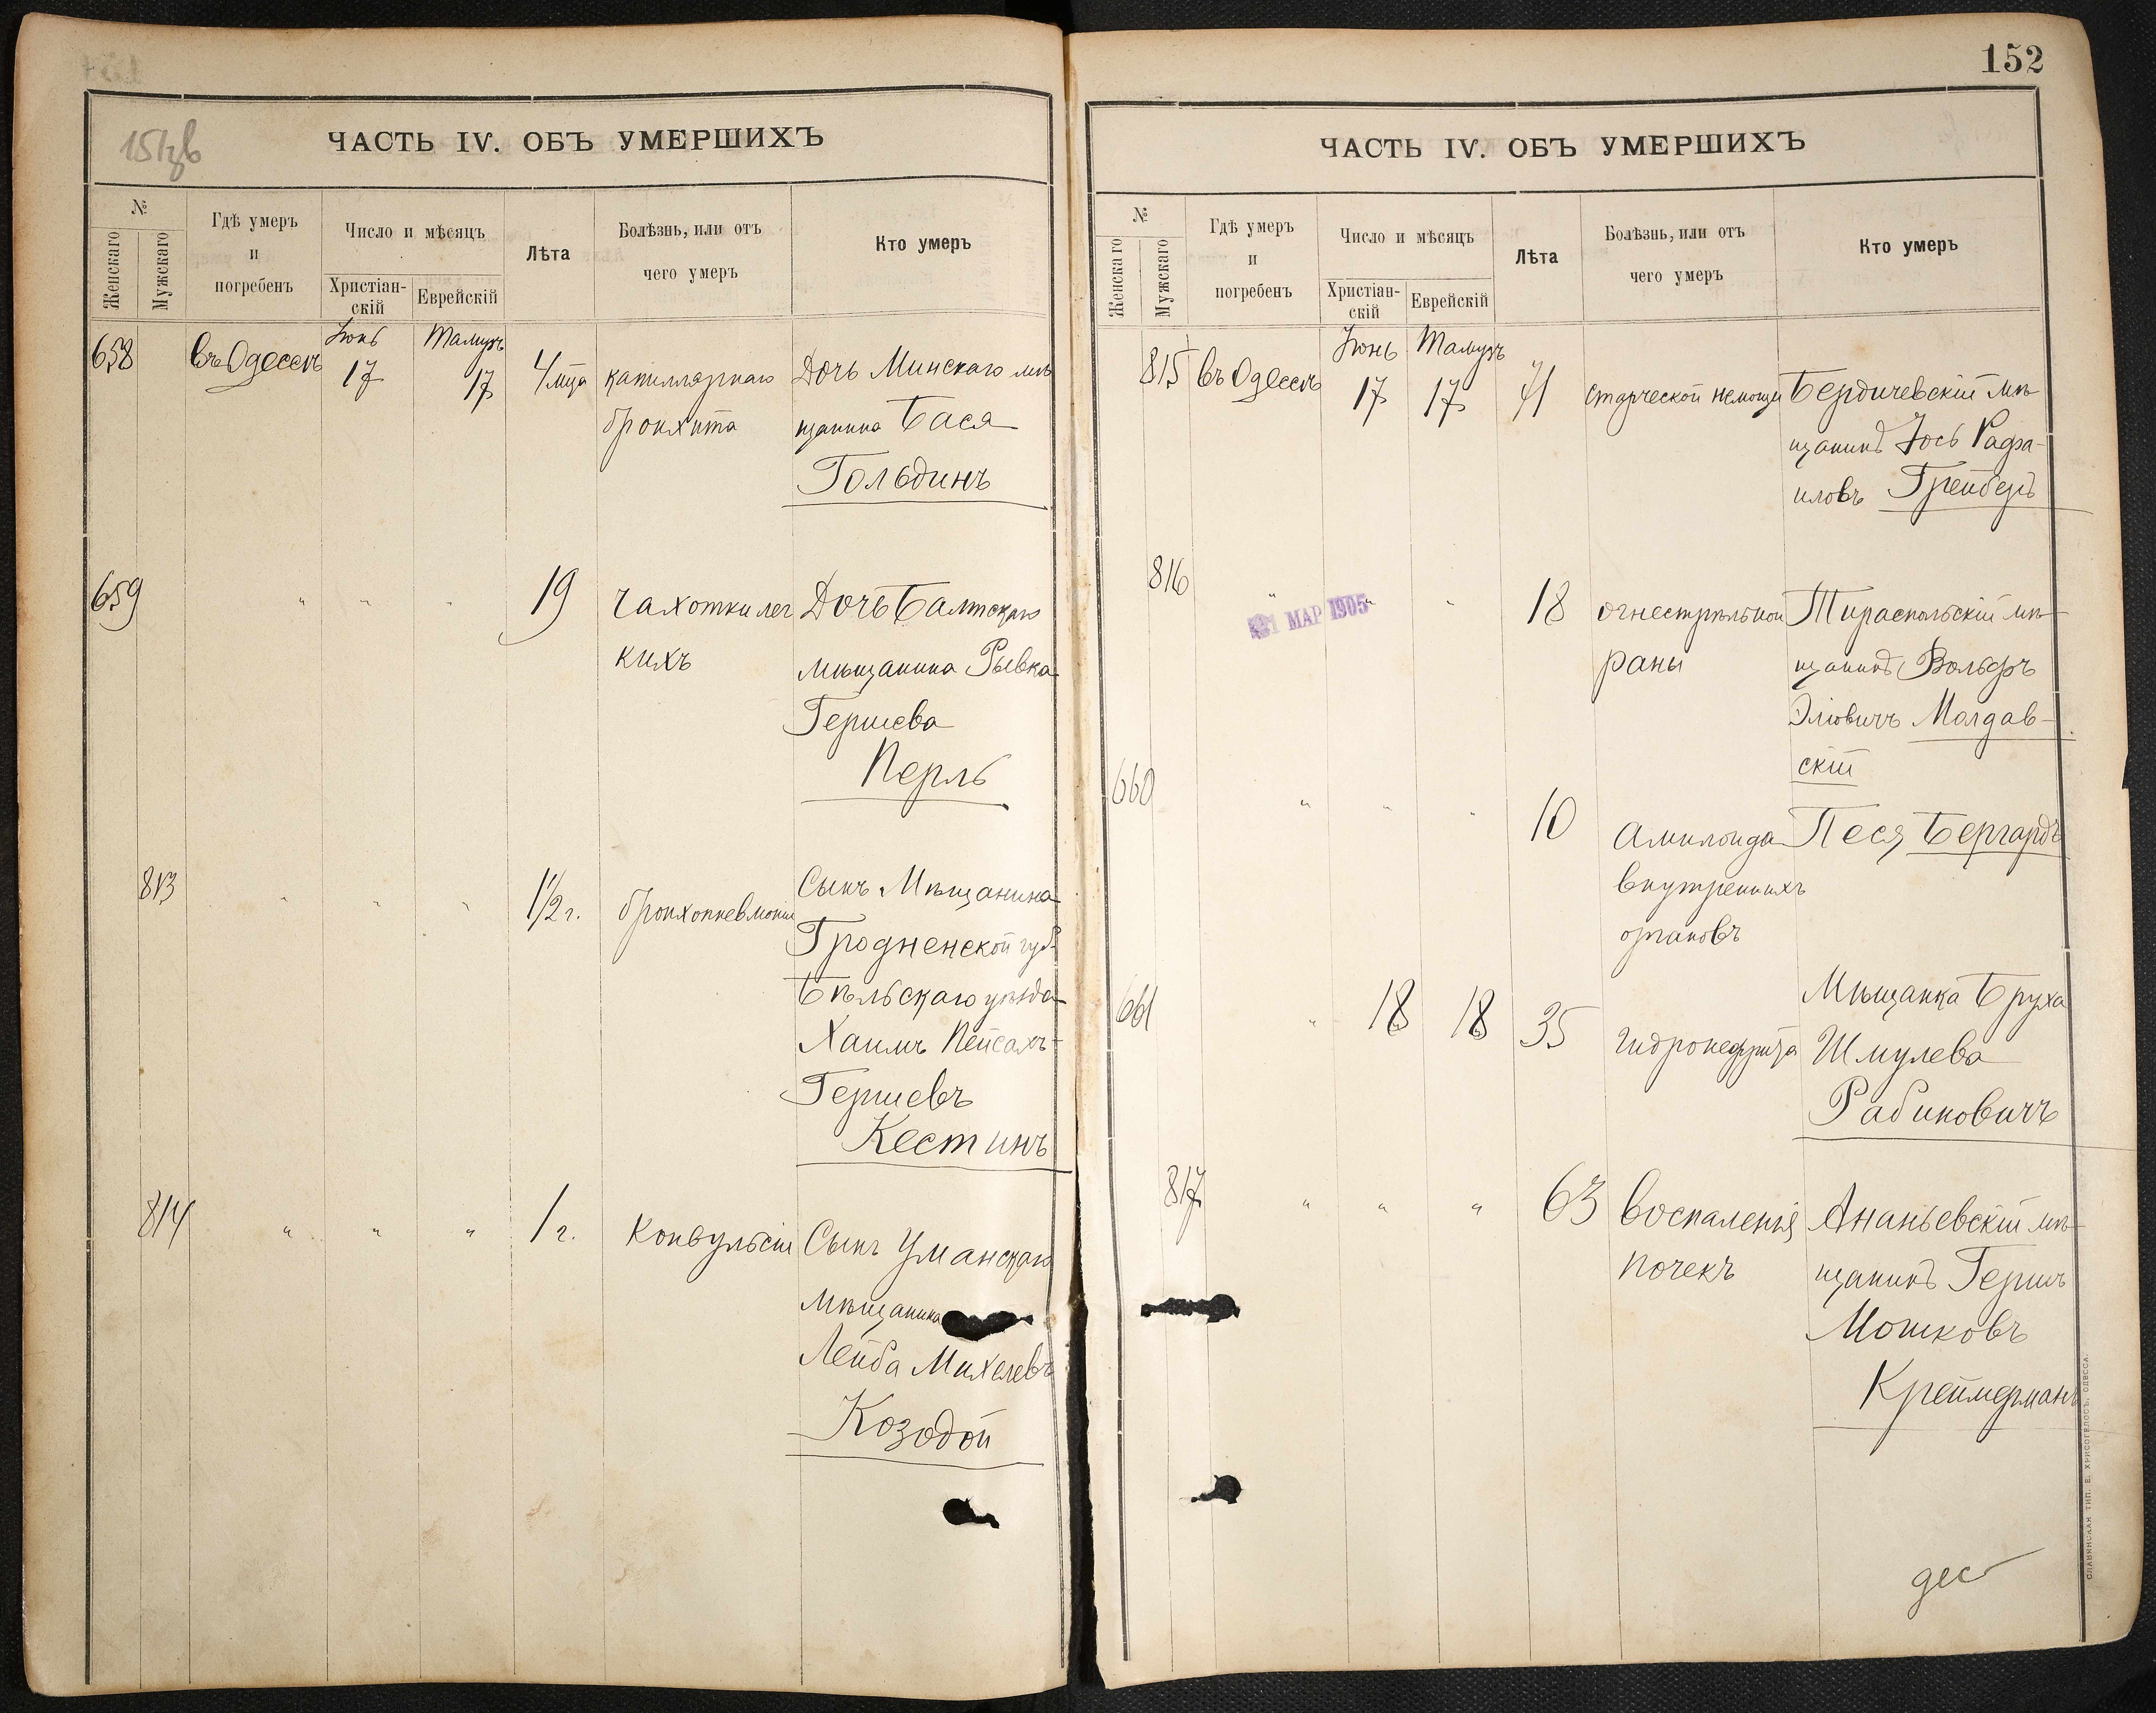 151зв
ЧАСТЬ IV. ОБЪ УМЕРШИХЪ
№
Женскаго
Мужскаго
Гдѣ умеръ
и
погребенъ
Число и мѣсяцъ
Христіан-
скій
Еврейскій
Лѣта
Болѣзнь, или отъ
чего умеръ
Кто умеръ
658 въ Одессѣ Іюнь 17 Тамузъ 17 4 мца капиллярнаго Дочь Минскаго мѣ
бронхита щанина Бася
Гольдинъ
659 " " " 19 чахотки лег Дочь Балтскаго
кихъ мѣщанина Рывка
Гершева
Перль
813 " " " 1½ г. бронхопневмоніи Сынъ Мѣщанина
Гродненской губ.
Бѣльскаго уѣзда
Хаимъ Пейсахъ-
Гершевъ
Кестинъ
814 " " " 1 г. Конвульсіи Сынъ Уманскаго
мѣщанина
Лейба Михелевъ
Козодой
152
ЧАСТЬ IV. ОБЪ УМЕРШИХЪ
№
Женскаго
Мужскаго
Гдѣ умеръ
и
погребенъ
Число и мѣсяцъ
Христіан-
скій
Еврейскій
Лѣта
Болѣзнь, или отъ
чего умеръ
Кто умеръ
815 въ Одессѣ Іюнь 17 Тамузъ 17 71 старческой немощи Бердичевскій мѣ
щанинъ Іось Рафа-
иловъ Грейберъ
816 " " " 18 огнестрѣльной Тираспольскій мѣ
раны щанинъ Вольфъ
Эліовичъ Молдав-
скій
1 МАР 1905
660 " " " 10 Амилоида Песя Бергардъ
внутреннихъ
органовъ
661 " 18 18 35 гидронефрита Мѣщанка Бруха
Шмулева
Рабиновичъ
817 " " " 63 Воспаленія Ананьевскій мѣ
почекъ щанинъ Гершъ
Мошковъ
Креймерманъ
дес
СЛАВЯНСКАЯ ТИП. Е. ХРИСОГЕЛОСЪ, ОДЕССА.